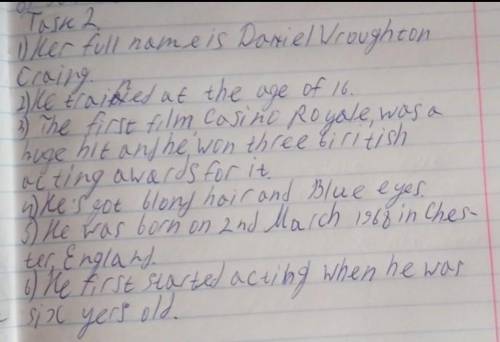 Task 2.
1) Her full name is Daniel Vroughton
Craing.
2) He trained at the age of 16.
3) The first film, Casino Royale, was a
huge hit and he, won three british
acting awards for it.
4) He's got blong hair and Blue eyes.
5) He was born on 2nd March 1968 in Ches-
ter, England.
6) He first started acting when he was
six yers old.